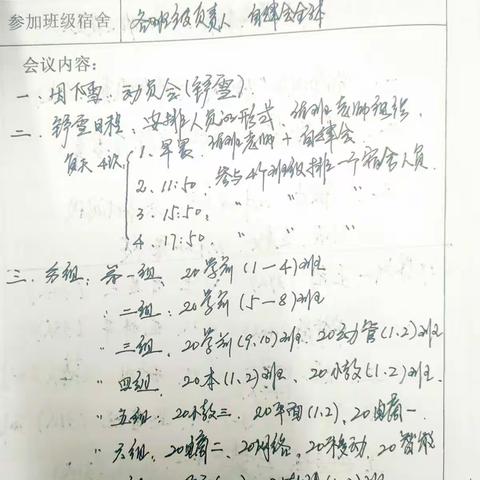 参加班级宿舍 各班级负责人 自律会全体
会议内容:
一、因下雪,动员会(铲雪)
二、铲雪日程,安排人员的形式,值班老师组织,
每天4次 1、早晨,值班老师+自律会
2、11:50,参与4个班级排一个宿舍人员
3、15:50, 〃 〃 〃
4、17:50 〃 〃 〃
三、分组:第一组,20学前(1—4)班
〃 二组:20学前(5—8)班
〃 三组,20学前(9,10)班、20动管(1.2)班
〃 四组,20本(1,2)班、20小教(1、2)班
〃 五组:20小教三、20平面(1.2)、20电商一
〃 六组,20电商二、20网络、20移动、20智能